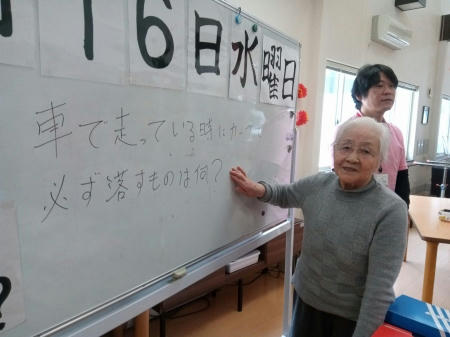 16日水曜日
車で走っている時にカー
必ず落すものは何?
?